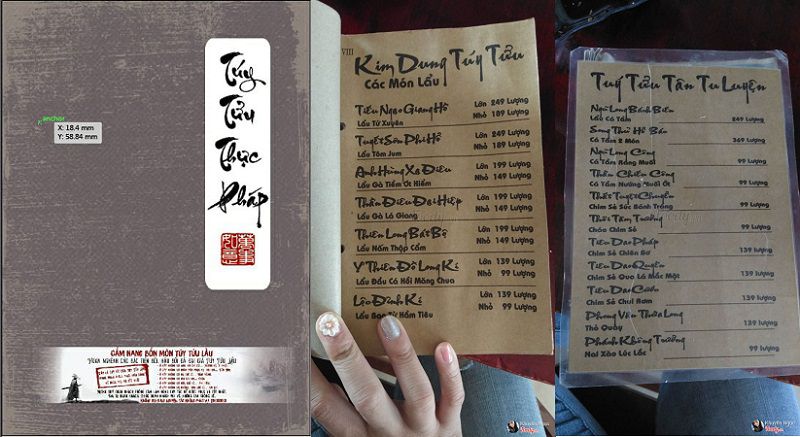 anchor
X: 18.4 mm
Y: 58.84 mm
Túy
Tửu
Thực
Pháp
萬事
如意
CẨM NANG BỔN MÔN TÚY TỬU LẦU
VIII
Kim Dung Túy Tửu
Các Món Lẩu
Tiếu Ngạo Giang Hồ Lớn 249 Lượng
Lẩu Tứ Xuyên Nhỏ 189 Lượng
Tuyết Sơn Phi Hồ Lớn 249 Lượng
Lẩu Tôm Jum Nhỏ 189 Lượng
Anh Hùng Xạ Điêu Lớn 199 Lượng
Lẩu Gà Tiềm Ớt Hiểm Nhỏ 149 Lượng
Thần Điêu Đại Hiệp Lớn 199 Lượng
Lẩu Gà Lá Giang Nhỏ 149 Lượng
Thiên Long Bát Bộ Lớn 199 Lượng
Lẩu Nấm Thập Cẩm Nhỏ 149 Lượng
Ỷ Thiên Đồ Long Kí Lớn 139 Lượng
Lẩu Đầu Cá Hồi Măng Chua Nhỏ 99 Lượng
Lộc Đỉnh Kí Lớn 139 Lượng
Lẩu Bao Tử Hầm Tiêu Nhỏ 99 Lượng
Tuý Tửu Tân Tu Luyện
Ngũ Long Bánh Biếu
Lẩu Cá Tầm 249 Lượng
Song Thủ Hổ Bác
Cá Tầm 2 Món 369 Lượng
Ngũ Long Công
Cá Tầm Rang Muối 99 Lượng
Thần Chiến Công
Cá Tầm Nướng Muối Ớt 99 Lượng
Thất Tuyệt Chuyên
Chim Sẻ Súc Bánh Tráng 99 Lượng
Thất Tâm Trường
Cháo Chim Sẻ 99 Lượng
Tiêu Dao Pháp
Chim Sẻ Chiên Bơ 139 Lượng
Tiêu Dao Quyền
Chim Sẻ Quay Lá Mắc Mật 139 Lượng
Tiêu Dao Cước
Chim Sẻ Chui Rơm 139 Lượng
Phong Vân Thừa Long
Thỏ Quay 139 Lượng
Phách Không Trường
Nai Xào Lúc Lắc 99 Lượng